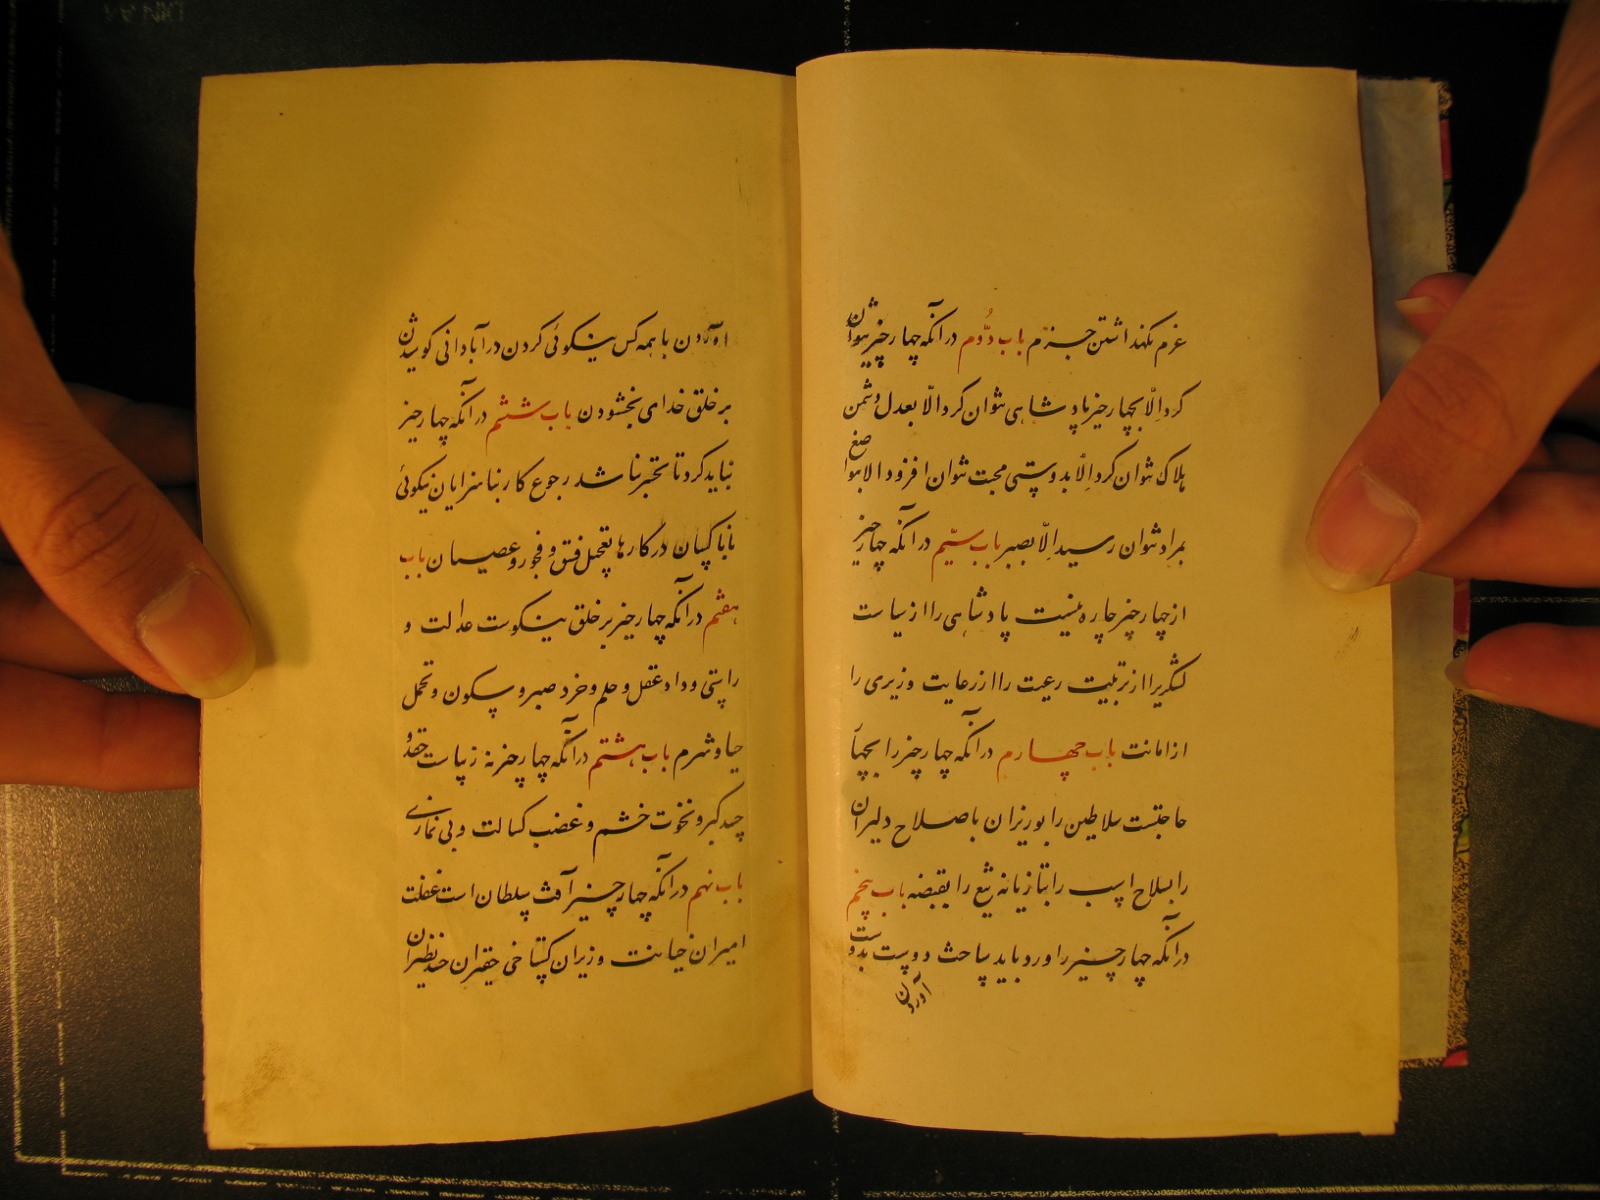 عزم نگهداشتن جزم باب دُوّم در آنکه چهار چیز نتوان
کرد اِلّا بچهار چیز پادشاهی نتوان کرد الّا بعدل دشمن
هلاک نتوان کرد اِلّا بدوستی محبت نتوان افزود الا بتواضع
بمراد نتوان رسید اِلّا بصبر باب سیّم در آنکه چهار چیز
از چهار چیز چاره نیست پادشاهی را از سیاست
لشگریرا از تربیت رعیت را از رعایت وزیری را
از امانت باب چهارم در آنکه چهار چیز را بچهار
حاجتست سلاطین را بوزیران باصلاح دلیران
را بسلاح اسب را بتازیانه تیغ را بقبضه باب پنجم
در آنکه چهار چیز را ورد باید ساخت دوست بدوست
آوردن
آوردن با همه کس نیکوئی کردن در آبادانی کوشیدن
بر خلق خدای بخشودن باب ششم در آنکه چهار چیز
نباید کرد تا تحیر نباشد رجوع کار بناسزایان نیکوئی
با ناکسان در کارها تعجیل فسق و فجور و عصیان باب
هفتم در آنکه چهار چیز بر خلق نیکوست عدالت و
راستی و داد عقل و حلم و خرد صبر و سکون و تحمل
حیا و شرم باب هشتم در آنکه چهار چیز نه زیباست حقد و
حسد کبر و نخوت خشم و غضب کسالت و بی نمازی
باب نهم در آنکه چهار چیز آفت سلطان است غفلت
امیران خیانت وزیران گستاخی حقیران حسد نظیران